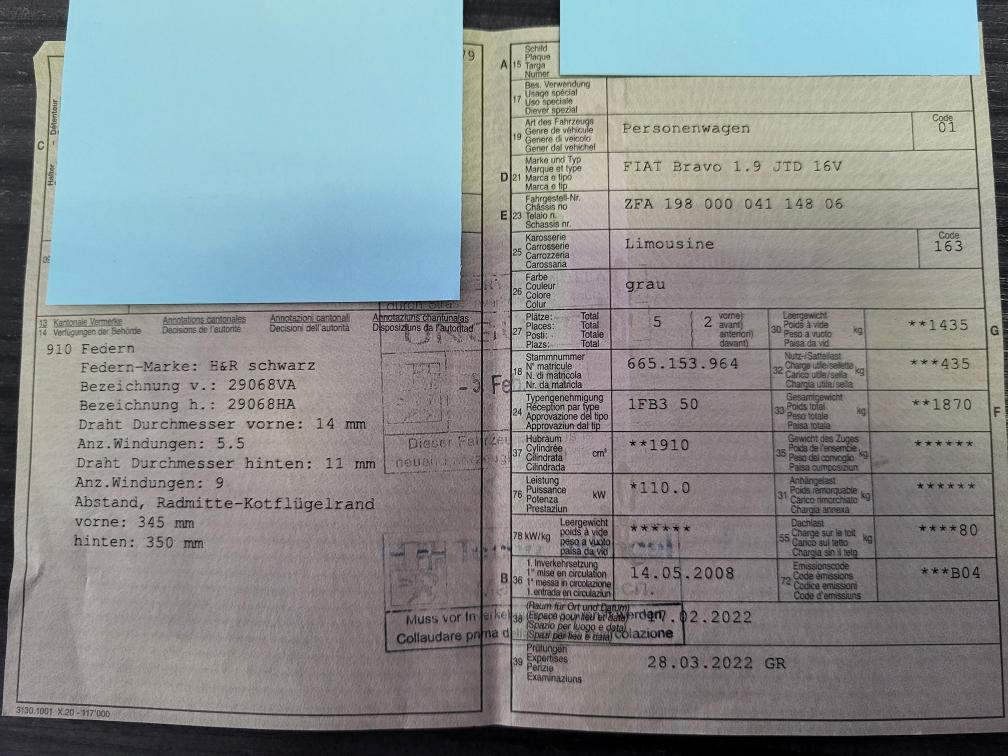 79
C
Halter - Détenteur
09
13 Kantonale Vermerke Annotations cantonales Annotazioni cantonali Annotaziuns chantunalas
14 Verfügungen der Behörde Décisions de l'autorité Decisioni dell'autorità Disposiziuns da l'autoritad
910 Federn
Federn-Marke: H&R schwarz
Bezeichnung v.: 29068VA
Bezeichnung h.: 29068HA
Draht Durchmesser vorne: 14 mm
Anz.Windungen: 5.5
Draht Durchmesser hinten: 11 mm
Anz.Windungen: 9
Abstand, Radmitte-Kotflügelrand
vorne: 345 mm
hinten: 350 mm
Dieser Fahrze
Muss vor In werden
Collaudare prima d colazione
3130.1001 X.20 - 117'000
A 15 Schild
Plaque
Targa
Numer
17 Bes. Verwendung
Usage spécial
Uso speciale
Diever spezial
19 Art des Fahrzeugs
Genre de véhicule
Genere di veicolo
Gener dal vehichel
Personenwagen
Code
01
D 21 Marke und Typ
Marque et type
Marca e tipo
Marca e tip
FIAT Bravo 1.9 JTD 16V
E 23 Fahrgestell-Nr.
Châssis no
Telaio n.
Schassis nr.
ZFA 198 000 041 148 06
25 Karosserie
Carrosserie
Carrozzeria
Carossaria
Limousine
Code
163
26 Farbe
Couleur
Colore
Colur
grau
27 Plätze: Total
Places: Total
Posti: Totale
Plazs: Total
5 2
vorne)
avant)
anteriori)
davant)
30 Leergewicht
Poids à vide
Peso a vuoto
Paisa da vid
kg
**1435
G
18 Stammnummer
N° matricule
N. di matricola
Nr. da matricla
665.153.964
32 Nutz-/Sattellast
Charge utile/sellette
Carico utile/sella
Chargia utila/sella
kg
***435
24 Typengenehmigung
Réception par type
Approvazione del tipo
Approvaziun dal tip
1FB3 50
33 Gesamtgewicht
Poids total
Peso totale
Paisa totala
kg
**1870
F
37 Hubraum
Cylindrée
Cilindrata
Cilindrada
cm³
**1910
35 Gewicht des Zuges
Poids de l'ensemble
Peso del convoglio
Paisa cumposiziun
kg
******
76 Leistung
Puissance
Potenza
Prestaziun
kW
*110.0
31 Anhängelast
Poids remorquable
Carico rimorchiato
Chargia annexa
kg
******
78 kW/kg Leergewicht
poids à vide
peso a vuoto
paisa da vid
******
55 Dachlast
Charge sur le toit
Carico sul tetto
Chargia sin il tetg
kg
****80
B 36 1. Inverkehrsetzung
1re mise en circulation
1a messa in circolazione
1. entrada en circulaziun
14.05.2008
72 Emissionscode
Code émissions
Codice emissioni
Code d'emissiuns
***B04
38 (Raum für Ort und Datum)
(Espace pour lieu et date)
(Spazio per luogo e data)
(Spazi per lieu e data)
17.02.2022
39 Prüfungen
Expertises
Perizie
Examinaziuns
28.03.2022 GR